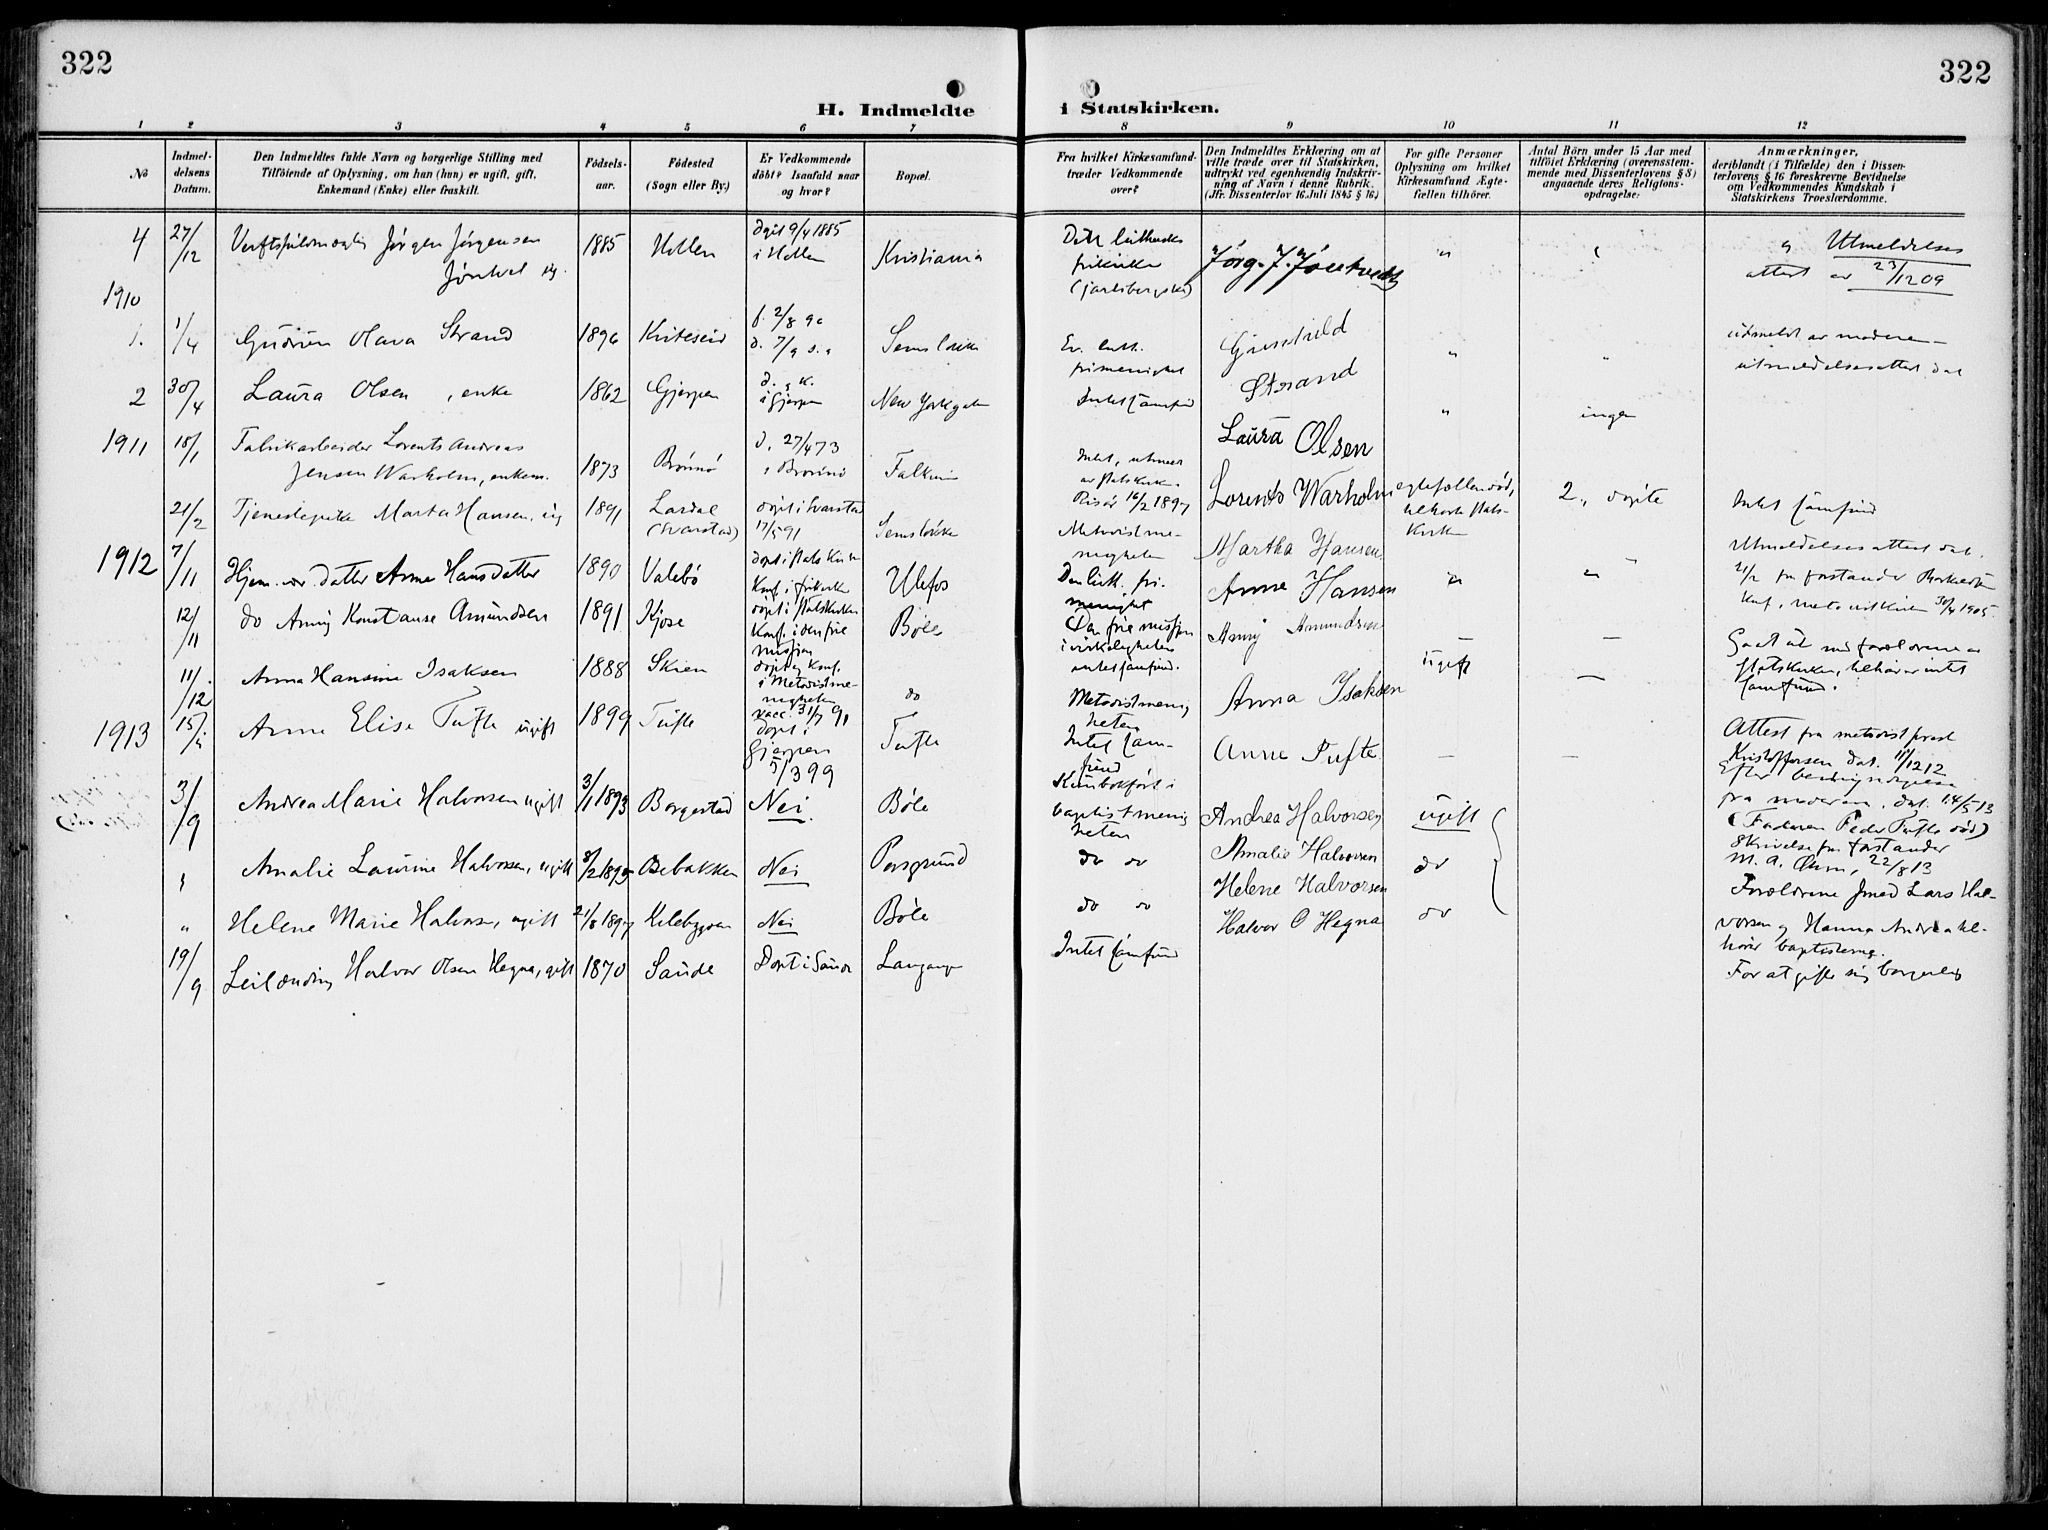 322
322
H. Indmeldte i Statskirken.
1 2 3 4 5 6 7 8 9 10 11 12
No
Indmel-
delsens
Datum.
Den Indmeldtes fulde Navn og borgerlige Stilling med
Tilföiende af Oplysning, om han (hun) er ugift, gift,
Enkemand (Enke) eller fraskilt.
Födsels-
aar.
Födested
(Sogn eller By.)
Er Vedkommende
döbt? Isaafald naar
og hvor?
Bopæl.
Fra hvilket Kirkesamfund-
træder Vedkommende
over?
Den Indmeldtes Erklæring om at
ville træde over til Statskirken,
udtrykt ved egenhændig Indskriv-
ning af Navn i denne Rubrik.
(Jfr. Dissenterlov 16. Juli 1845 § 16.)
For gifte Personer
Oplysning om hvilket
Kirkesamfund Ægte-
fællen tilhörer.
Antal Börn under 15 Aar med
tilföiet Erklæring (overensstem-
mende med Dissenterlovens § 8)
angaaende deres Religions-
opdragelse:
Anmærkninger,
deriblandt (i Tilfælde) den i Dissen-
terlovens § 16 foreskrevne Bevidnelse
om Vedkommendes Kundskab i
Statskirkens Troeslærdomme.
4 27/12 Jørgen Jørgensen
1885 Hollen
9/4 1885
i Hollen
Kristiania
frikirke
(jarlsbergske)
Jørg. J.
Utmeldelses
attest av 23/12 09
1910
1. 1/4 Gudrun Olava Strand 1896
f. 2/8 96
d. 7/9 s.a
Ev. luth.
frimenighet
Strand
utmeldt av moderen
utmeldelsesattest dat
2 30/4 Laura Olsen, enke 1862 Gjerpen
i Gjerpen
New Yorkgate
Intet samfund
Laura Olsen
" ingen
1911 18/1 Fabrikarbeider Lorents Andreas
Jensen Warholm, enkem. 1873 Brønnø
d. 27/4 73
i Brønnø
Falkum
Intet, utmeldt
av statskirken
Risør 16/2 1897
Lorents Warholm
egtefællen død,
tilhørte stats-
kirken
2, døpte
Intet samfund
21/2 Tjenestepike Marta Hansen, ug 1891
Lardal
(Svarstad)
døpt i Svarstad
17/5 91
Metodistme-
nigheten
Martha Hansen
Utmeldelsesattest dat.
1912 7/11 Hjem. vær. datter Anne Hansdatter 1890 Valebø
døpt i statskirken
Konf. i frikirken
Ulefos
Den luth. fri-
menighet
Anne Hansen
12/11 do Anny Konstanse Amundsen 1891 Kjose
døpt i statskirken
Konf. i den frie
misjon
Bøle
Den frie misjon
i virkeligheten
intet samfund.
Anny Amundsen
Gaat ut med forældrene av
statskirken, tilhører intet
samfund.
11/12 Anna Hansine Isaksen 1888 Skien
døpt og konf.
i Metodistme-
nigheten
vacc. 31/7 91
do
Metodistmenig
heten
Anna Isaksen
ugift
Attest fra metodistprest
Kristoffersen dat. 11/12 12
1913 15/5 Anne Elise Tufte ugift 1899 Tufte
døpt i
Gjerpen
5/3 99
Tufte
Intet sam-
fund
Anne Tufte
fra moderen, dat. 14/5 13
(Faderen Peder Tufte død)
3/9 Andrea Marie Halvorsen ugift 3/1 1893 Borgestad Nei Bøle
baptistmenig
heten
Andrea Halvorsen
ugift
Skrivelse fra forstander
M. A. Øhrn, 22/8 13
" Amalie Laurine Halvorsen, ugift 3/2 1895 Osebakken Nei Porsgrund
do do
Amalie Halvorsen
do
Forældrene Smed Lars Hal-
" Helene Marie Halvorsen, ugift 21/8 1897 Kilebygden Nei Bøle
do do
Helene Halvorsen
do
vorsen og Hanna Andrea til-
hører baptisterne.
19/9 Leilænding Halvor Olsen Hegna, ugift 1870 Saude Døpt i Saude Langangen
Intet samfund
Halvor O Hegna
For at gifte sig borgerlig